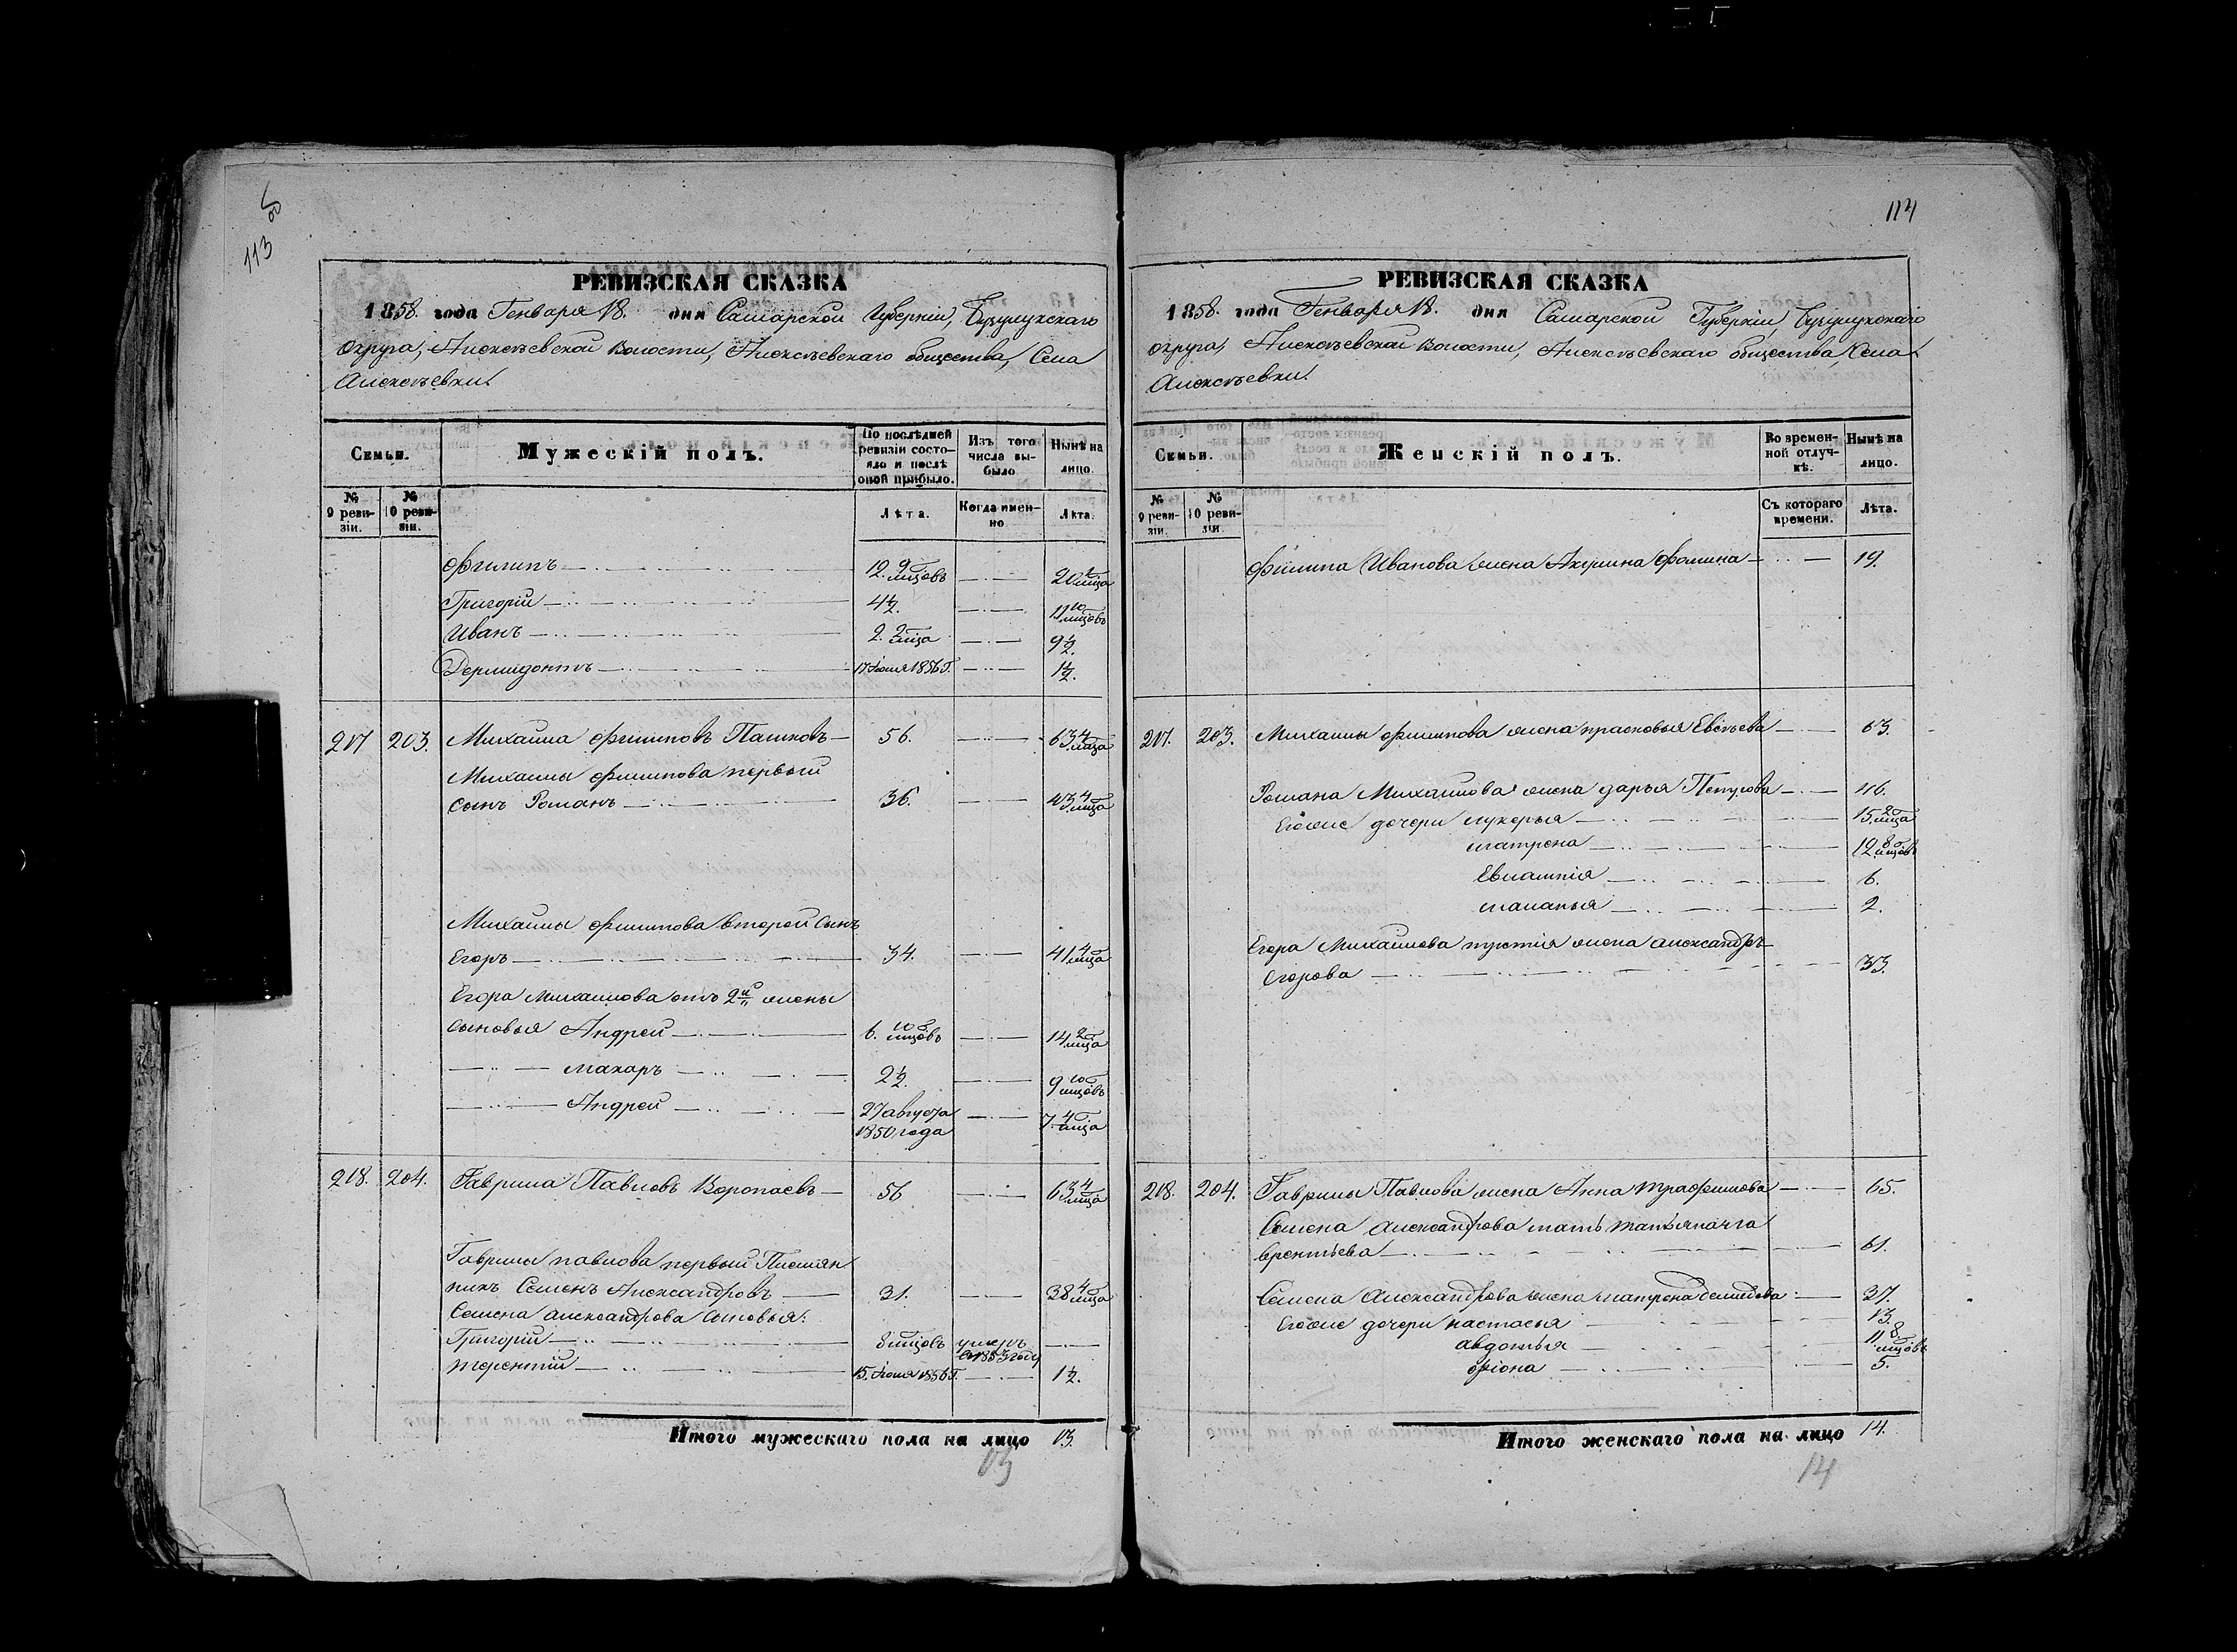 113
114
РЕВИЗСКАЯ СКАЗКА
1858. года Генваря 18. дня Самарской Губерніи, Бузулукскаго
Округа, Алексѣевской Волости, Алексѣевскаго общества, Села
Алексѣевки.
Семьи.
Мужескій полъ.
По послѣдней ревизіи состояло и послѣ оной прибыло.
Изъ того числа выбыло
Нынѣ на лицо.
№ 9 ревизіи.
№ 10 ревизіи.
Лѣта.
Когда именно
Лѣта.
Филипъ 12. 9 мцовъ 20 2 мца
Григорій 4½. 11 10 мцовъ
Иванъ 2. 2 мца 9½.
Дермидонтъ 17 Іюня 1856 г. 1½.
217 203. Михаила Филиповъ Пашковъ 56. 63 4 мца
Михаилы Филипова первый
сынъ Романъ 36. 43 4 мца
Михаилы Филипова второй сынъ
Егоръ 34. 41 4 мца
Егора Михаилова отъ 2й жены
сыновья Андрей 6. 10 мцовъ 14 2 мца
Макаръ 2½ 9 10 мцовъ
Андрей 27 августа 7. 4 мца
1850 года
218. 204. Гаврила Павловъ Воропаевъ 56 63 4 мца
Гаврилы Павлова первый Племян
никъ Семенъ Александровъ 31. 38 4 мца
Семена Александрова сыновья:
Григорій 8 мцовъ умеръ
въ 1853 году
Терентій 15. Іюня 1856 г. 1½.
Итого мужескаго пола на лицо 13.
13
РЕВИЗСКАЯ СКАЗКА
1858. года Генваря 18. дня Самарской Губерніи, Бузулукскаго
Округа, Алексѣевской Волости, Алексѣевскаго общества, Села
Алексѣевки.
Семьи.
Женскій полъ.
Во временной отлучкѣ.
Нынѣ на лицо.
№ 9 ревизіи.
№ 10 ревизіи.
Съ котораго времени.
Лѣта.
Филипа Иванова жена Акулина Фомина 19.
217. 203. Михаилы Филипова жена Прасковья Евсѣева 63.
Романа Михаилова жена Дарья 46.
Его же дочери Лукерья 15. 2 мца
Матрена 12 8 мцовъ
Евлампія 6.
Маланья 2.
Егора Михаилова третія жена Александра
Егорова 33.
218. 204. Гаврилы Павлова жена Анна Трафимова 65.
Семена Александрова мать Татьяна
61.
Семена Александрова жена Матрена Демидова 37.
Его же дочери Настасья 13.
Авдотья 11 8 мцовъ
Фіона 5.
Итого женскаго пола на лицо 14.
14